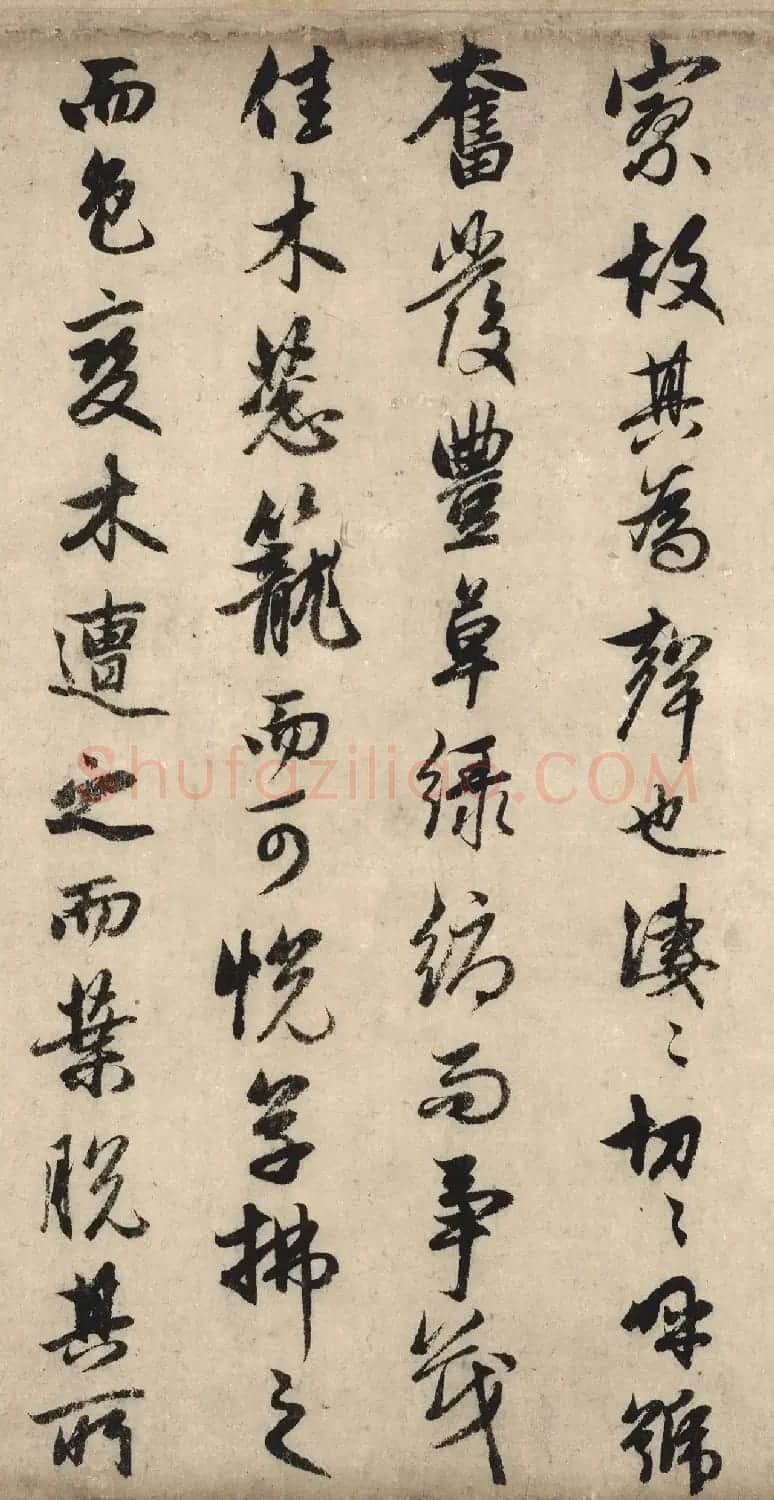 寥故其為聲也淒〻切〻呼號
奮發豐草綠縟而爭茂
佳木葱籠而可悅草拂之
而色變木遭之而葉脫其所
Shufaziliao.COM